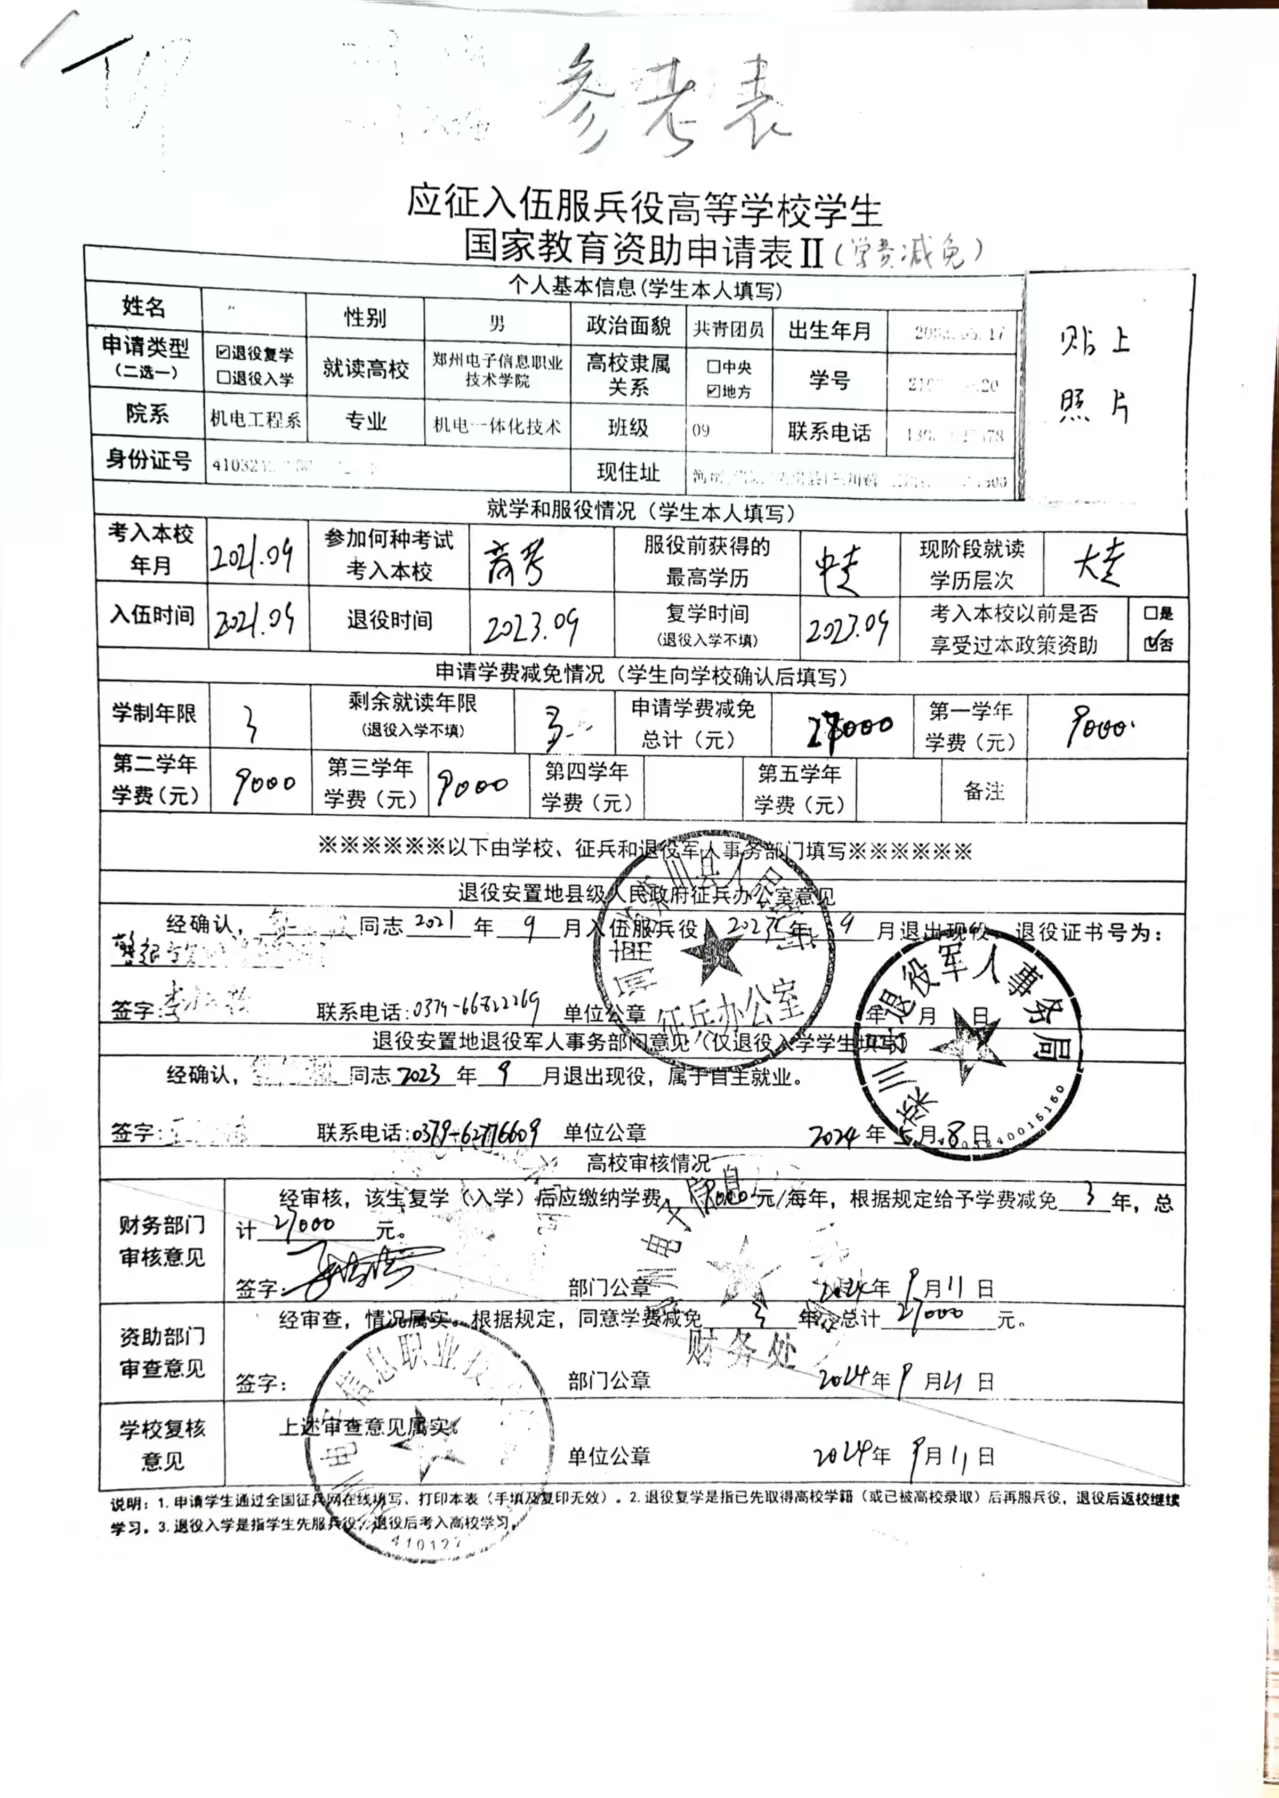 参考表
应征入伍服兵役高等学校学生
国家教育资助申请表Ⅱ(学费减免)
个人基本信息(学生本人填写)
贴上
照片
姓名 性别 男 政治面貌 共青团员 出生年月
申请类型(二选一) ☑退役复学 □退役入学 就读高校 郑州电子信息职业技术学院 高校隶属关系 □中央 ☑地方 学号
院系 机电工程系 专业 机电一体化技术 班级 09 联系电话
身份证号 现住址
就学和服役情况(学生本人填写)
考入本校年月 2021.09 参加何种考试考入本校 高考 服役前获得的最高学历 中专 现阶段就读学历层次 大专
入伍时间 2021.09 退役时间 2023.09 复学时间(退役入学不填) 2023.09 考入本校以前是否享受过本政策资助 □是 ☑否
申请学费减免情况(学生向学校确认后填写)
学制年限 3 剩余就读年限(退役入学不填) 3 申请学费减免总计(元) 27000 第一学年学费(元) 9000
第二学年学费(元) 9000 第三学年学费(元) 9000 第四学年学费(元) 第五学年学费(元) 备注
※※※※※※以下由学校、征兵和退役军人事务部门填写※※※※※※
退役安置地县级人民政府征兵办公室意见
经确认, 同志2021年9月入伍服兵役 2023年9月退出现役,退役证书号为:
签字: 联系电话: 单位公章 年 月 日
征兵办公室
退役安置地退役军人事务部门意见(仅退役入学学生填写)
经确认, 同志2023年9月退出现役,属于自主就业。
签字: 联系电话:0379-62776609 单位公章 2024年 月8日
栾川县退役军人事务局
高校审核情况
财务部门审核意见 经审核,该生复学(入学)后应缴纳学费9000元/每年,根据规定给予学费减免3年,总
计27000元。
签字: 部门公章 2024年9月11日
财务处
资助部门审查意见 经审查,情况属实。根据规定,同意学费减免3年,总计27000元。
签字: 部门公章 2024年9月11日
学校复核意见 上述审查意见属实。
单位公章 2024年9月11日
说明:1.申请学生通过全国征兵网在线填写、打印本表(手填及复印无效)。2.退役复学是指已先取得高校学籍(或已被高校录取)后再服兵役,退役后返校继续
学习。3.退役入学是指学生先服兵役,退役后考入高校学习。